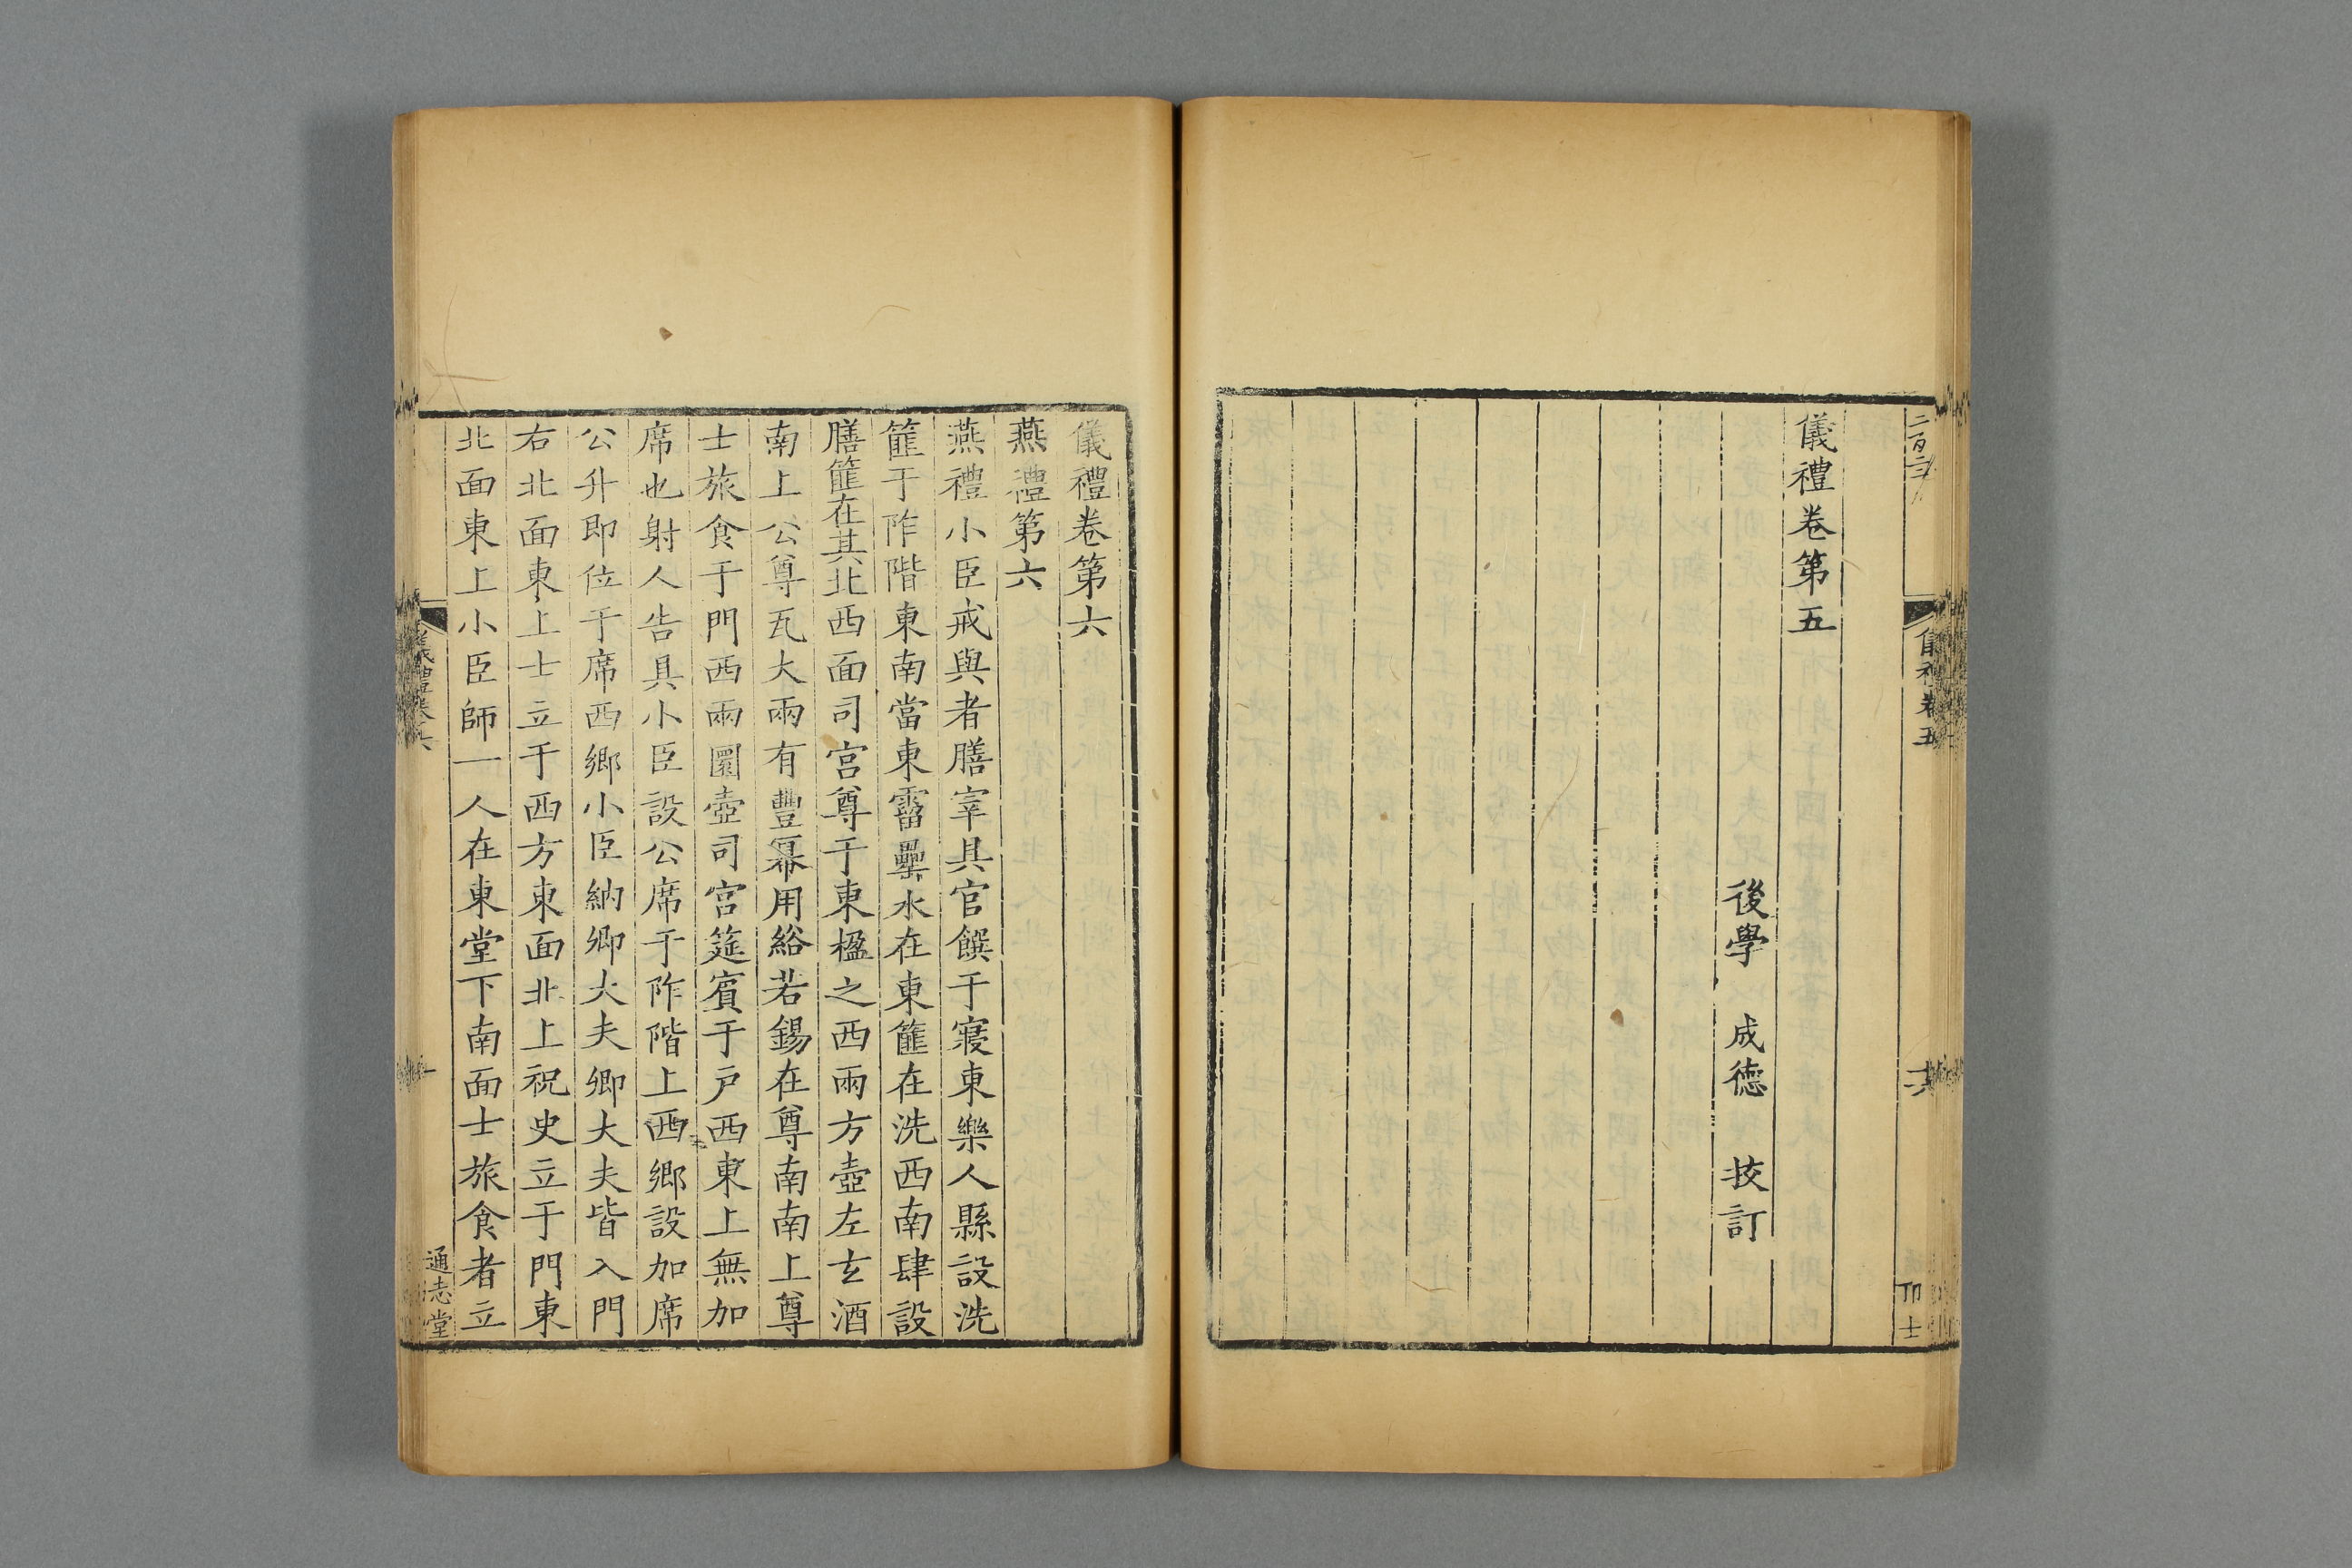 儀禮卷第五
後學 成德 挍訂
儀禮卷第六
燕禮第六
燕禮小臣戒與者膳宰具官饌于寢東樂人縣設洗
篚于阼階東南當東霤罍水在東篚在洗西南肆設
膳篚在其北西面司宫尊于東楹之西兩方壺左玄酒
南上公尊瓦大兩有豐冪用綌若錫在尊南南上尊
士旅食于門西兩圜壺司宫筵賔于戸西東上無加
席也射人告具小臣設公席于阼階上西鄉設加席
公升即位于席西鄉小臣納卿大夫卿大夫皆入門
右北面東上士立于西方東面北上祝史立于門東
北面東上小臣師一人在東堂下南面士旅食者立
通志堂